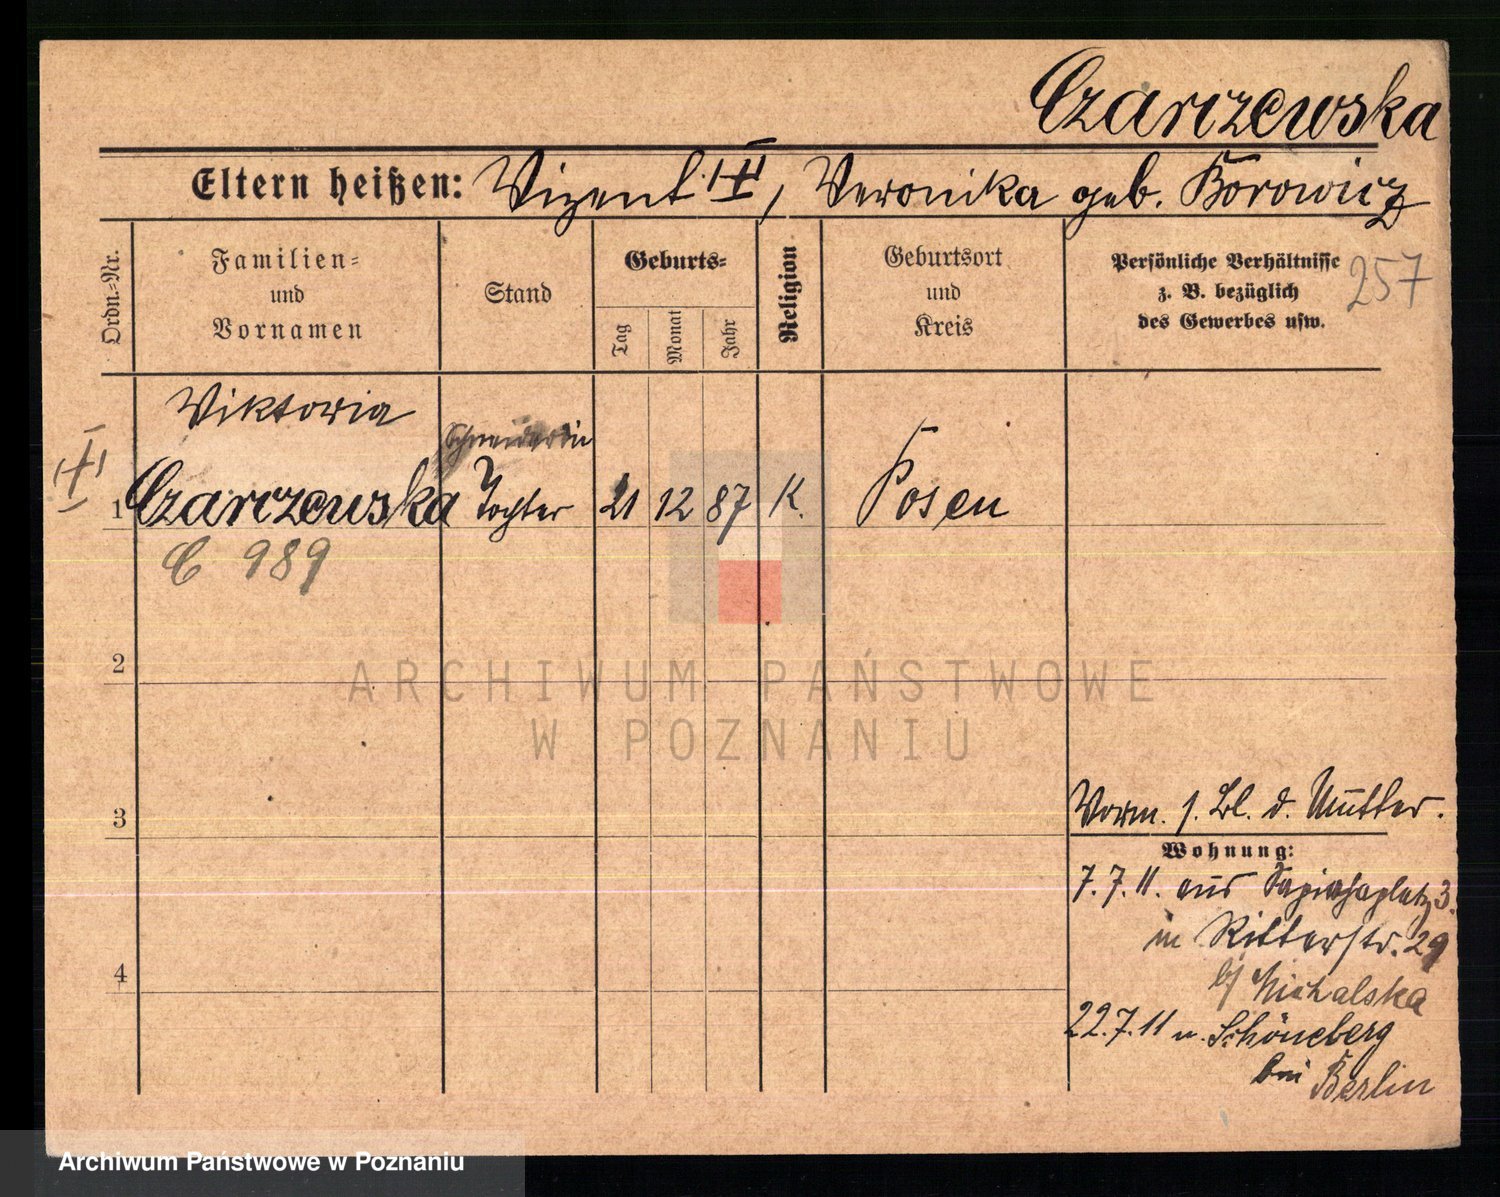 Czarczewska
Eltern heißen: Vizent, Veronika geb. Borowicz
Ordn.-Nr.
Familien-
und
Vornamen
Stand
Geburts-
Tag
Monat
Jahr
Religion
Geburtsort
und
Kreis
Persönliche Verhältnisse
z. B. bezüglich
des Gewerbes usw.
257
Viktoria
Schneiderin
1 Czarczewska Tochter 21 12 87 K. Posen
C 989
2
3
4
Vorm. s. Bl. d. Mutter.
Wohnung:
7.7.11. aus Sapiehaplatz 3.
in Ritterstr. 29
b/ Michalska
22.7.11 n. Schöneberg
bei Berlin
ARCHIWUM PAŃSTWOWE
W POZNANIU
Archiwum Państwowe w Poznaniu